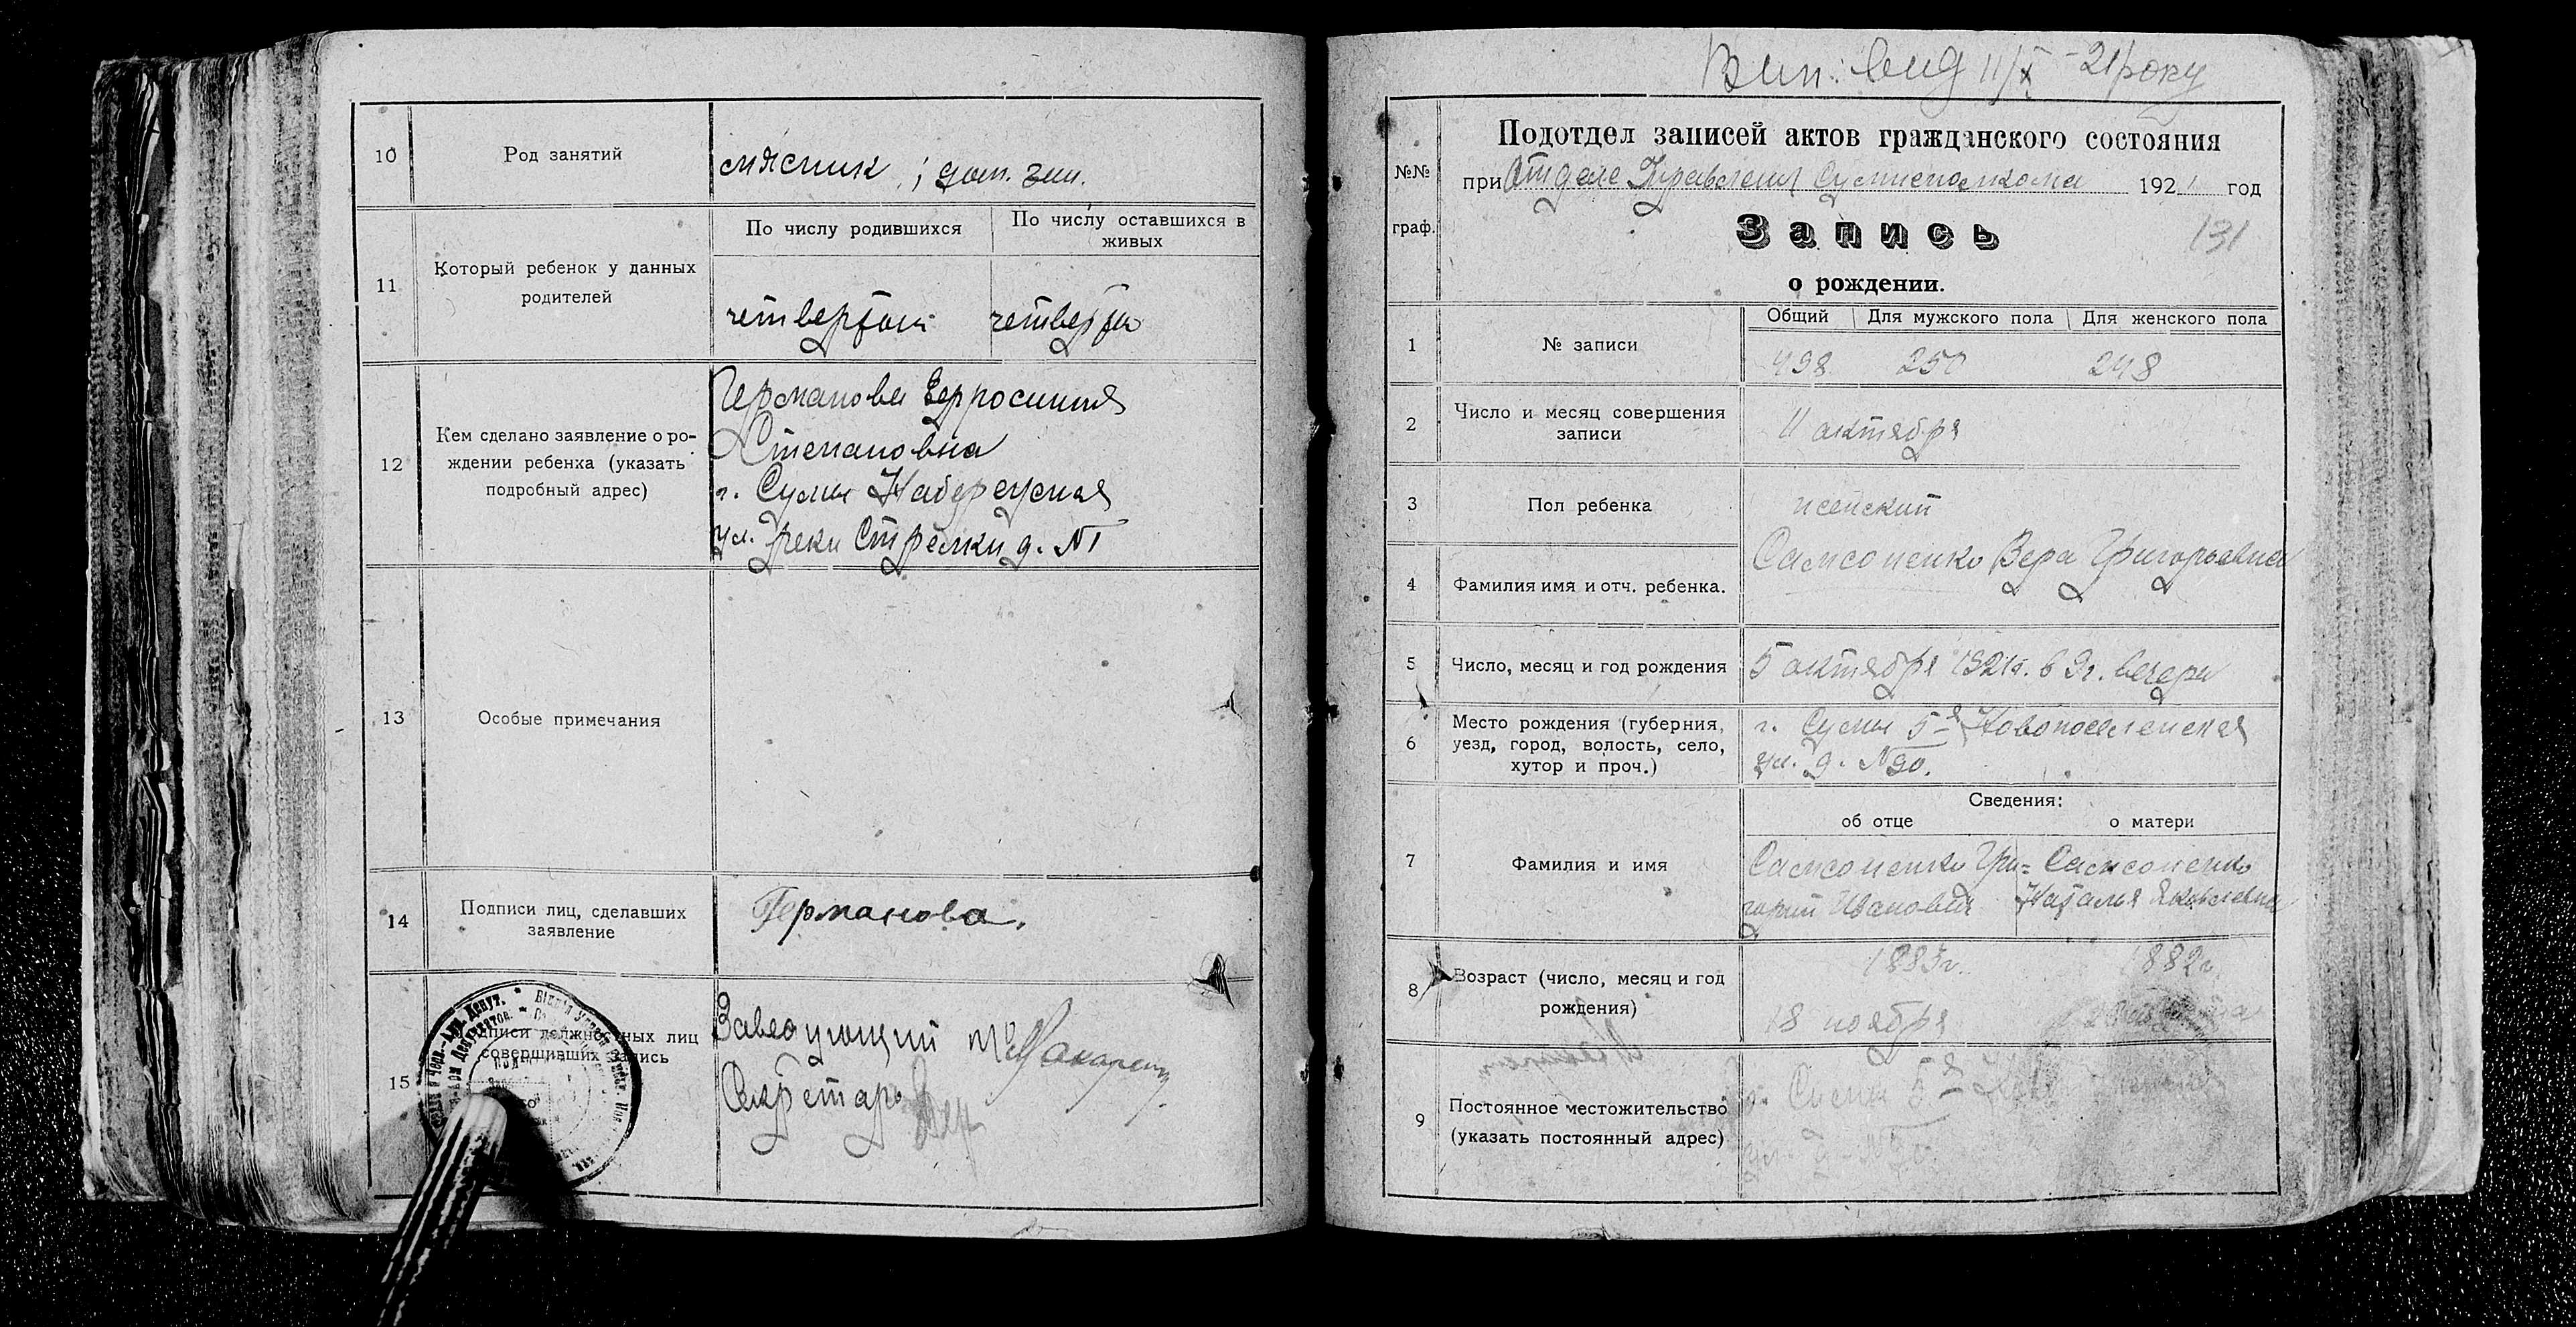 10
Род занятий
мясник ; дом. зан.
11
Который ребенок у данных
родителей
По числу родившихся
По числу оставшихся в
живых
четвертый
четверт
12
Кем сделано заявление о ро-
ждении ребенка (указать
подробный адрес)
Германова
Степановна
г. Сумы Набережная
ул. реки Стрелки д. №1
13
Особые примечания
14
Подписи лиц, сделавших
заявление
Германова.
15
одписи должностных лиц
совершивших запись
Заведующий
Секретарь
Вип. вид 11/X -21 року
№№
граф.
Подотдел записей актов гражданского состояния
при Отделе Управления Сумисполкома 1921 год
Запись
131
о рождении.
1
№ записи
Общий
Для мужского пола
Для женского пола
498 250 248
2
Число и месяц совершения
записи
11 октября
3
Пол ребенка
женский
4
Фамилия имя и отч. ребенка.
Самсоненко Вера Григорьевна
5
Число, месяц и год рождения
5 октября 1921г. в 9 ч. вечера
6
Место рождения (губерния,
уезд, город, волость, село,
хутор и проч.)
г. Сумы 5-я Новопоселенская
ул. д. №90.
7
Фамилия и имя
Сведения:
об отце
о матери
Самсоненко Гри=
горий Иванович
Самсоненко
Наталья Яковлевна
8
Возраст (число, месяц и год
рождения)
1883г.
18 ноября
1882г.
9
Постоянное местожительство
(указать постоянный адрес)
г. Сумы 5-я
ул. д.